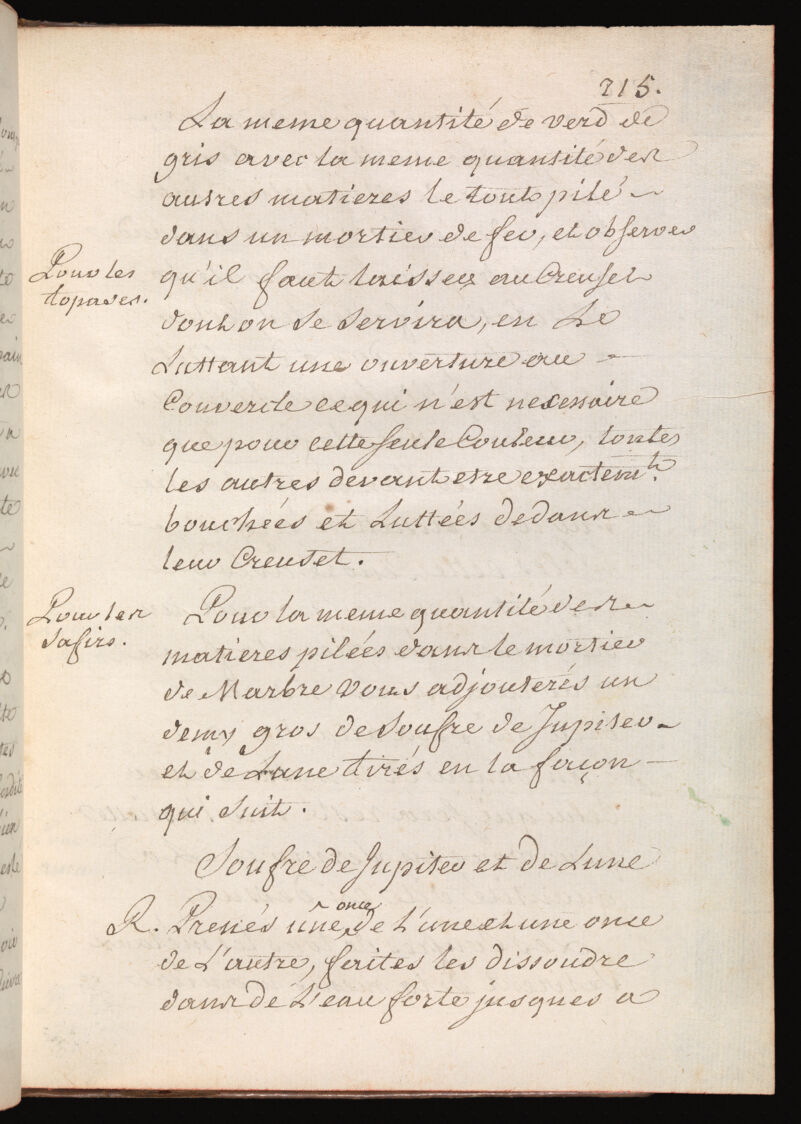 215.
La meme quantité de verd de
gris avec la meme quantité des
autres matieres le tout pilé
dans un mortier de fer, et observer
Pour les
topases.
qu'il faut laisser au Creuset
dont on se servira, en Le
Luttant une ouverture au
Couvercle ce qui n'est necessaire
que pour cette seule Couleur, toutes
les autres devant etre exactemt.
bouchées et Luttées dedans
leur Creuset.
Pour les
Safirs.
Pour la meme quantité des
matieres pilées dans le mortier
de Marbre Vous adjouterés un
demy gros de Soufre de Jupiter
et de Lune tirés en la façon
qui suit.
Soufre de Jupiter et de Lune
R. Prenés une once de L'une et une once
de L'autre, faites les dissoudre
dans de L'eau forte jusques a